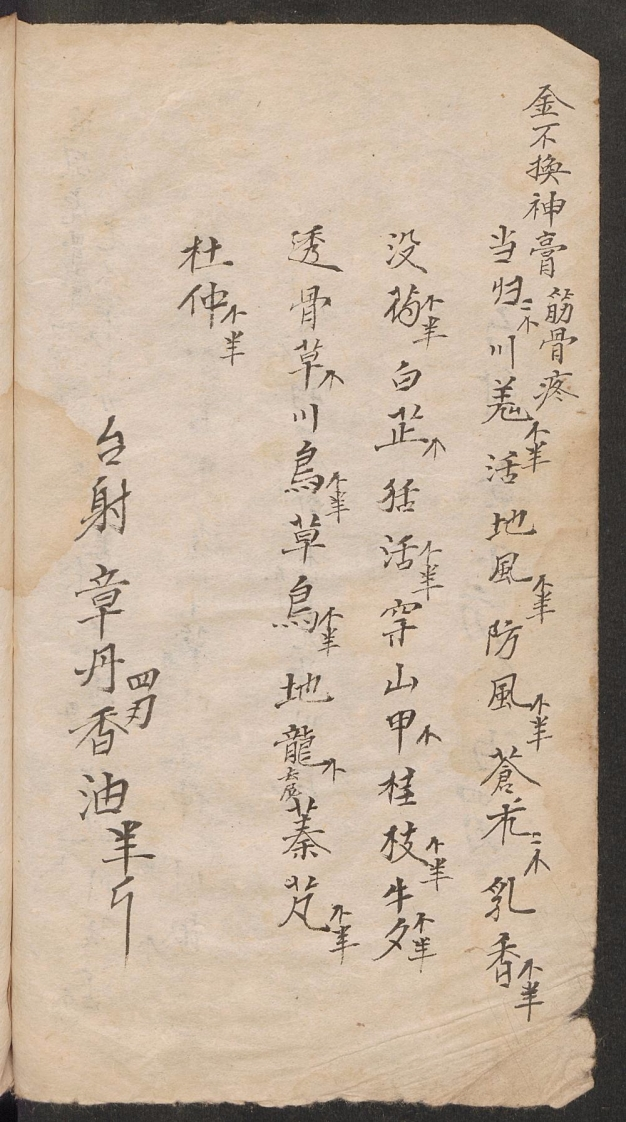 金不換神膏 筋骨疼
当归二个 川羌活个半 地風个半 防風个半 蒼朮二个 乳香个半
没药个半 白芷个 独活个半 穿山甲个 桂枝个半 牛夕个半
透骨草个 川烏个半 草烏个半 地龍个去尾 蓁艽个半
杜仲个半
台射 章丹四刃 香油半斤